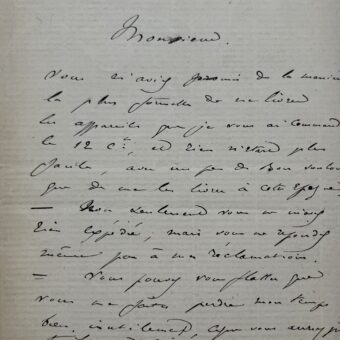 Monsieur.
Vous m'aviez promis de la manière
la plus formelle de me livrer
les appareils que je vous ai commandé
le 12 Ct, et rien n'était plus
facile, avec un peu de Bon vouloir
que de me les livrer à cette époque
— Non seulement vous ne m'avez
rien expédié, mais vous ne répondez
même pas à mes réclamations.
— Vous pouvez vous flatter que
vous me faites perdre mon temps
bien inutilement, et que vous